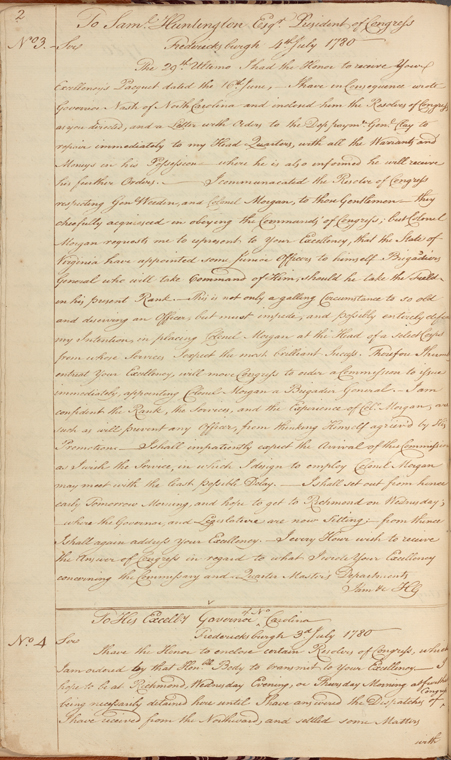 2
To Saml. Huntington Esqr. President of Congress
No. 3. Sir Fredericksburgh 4th July 1780
The 29th Ultimo I had the Honor to receive Your
Excellency's Pacquet dated the 16th June, I have in Consequence wrote
Governor Nash of North Carolina and inclosed him the Resolves of Congress
as you directed, and a Letter with Orders to the Dep. Paymr. Genl. Clay to
repair immediately to my Head Quarters, with all the Warrants and
Moneys in his Possession — where he is also informed he will receive
his further Orders. — I communacated the Resolve of Congress
respecting Genl. Weedon, and Colonel Morgan, to those Gentlemen — they
chearfully acquiesced in obeying the Commands of Congress; but Colonel
Morgan requests me to represent to Your Excellency, that the State of
Virginia have appointed some junior Officers to himself Brigadiers
General who will take Command of Him, should he take the Field
in his present Rank — This is not only a galling Circumstance to so old
and deserving an Officer, but must impede, and possibly entirely defeat
my Intention, in placing Colonel Morgan at the Head of a select Corps
from whose Services I expect the most brilliant Success. Therefore I must
entreat Your Excellency, will move Congress to order a Commission to issue
immediately, appointing Colonel Morgan a Brigadier General. — I am
confident the Rank, the Services, and the Experience of Col. Morgan, are
such as will prevent any Officer, from thinking Himself agrieved by His
Promotion — I shall impatiently expect the Arrival of this Commission
as I wish the Service, in which I design to employ Colonel Morgan
may meet with the least possible Delay. — I shall set out from hence
early Tomorrow Morning, and hope to get to Richmond on Wednesday;
where the Governor, and Legislature are now Sitting; from thence
I shall again address Your Excellency. — I every Hour wish to receive
the Answer of Congress in regard to what I wrote Your Excellency
concerning the Commissary and Quarter Master's Departments
I am &c HG
To His Excelly. Governor of No. Carolina
No. 4 Sir Fredericksburgh 3rd July 1780
I have the Honor to enclose certain Resolves of Congress, which
I am ordered by that Honble. Body to transmit to Your Excellency — I
hope to be at Richmond, Wednesday Evening, or Thursday Morning at furthest
being necessarily detained here until I have answered the Dispatches of Congress
I have received from the Northward, and settled some Matters
with